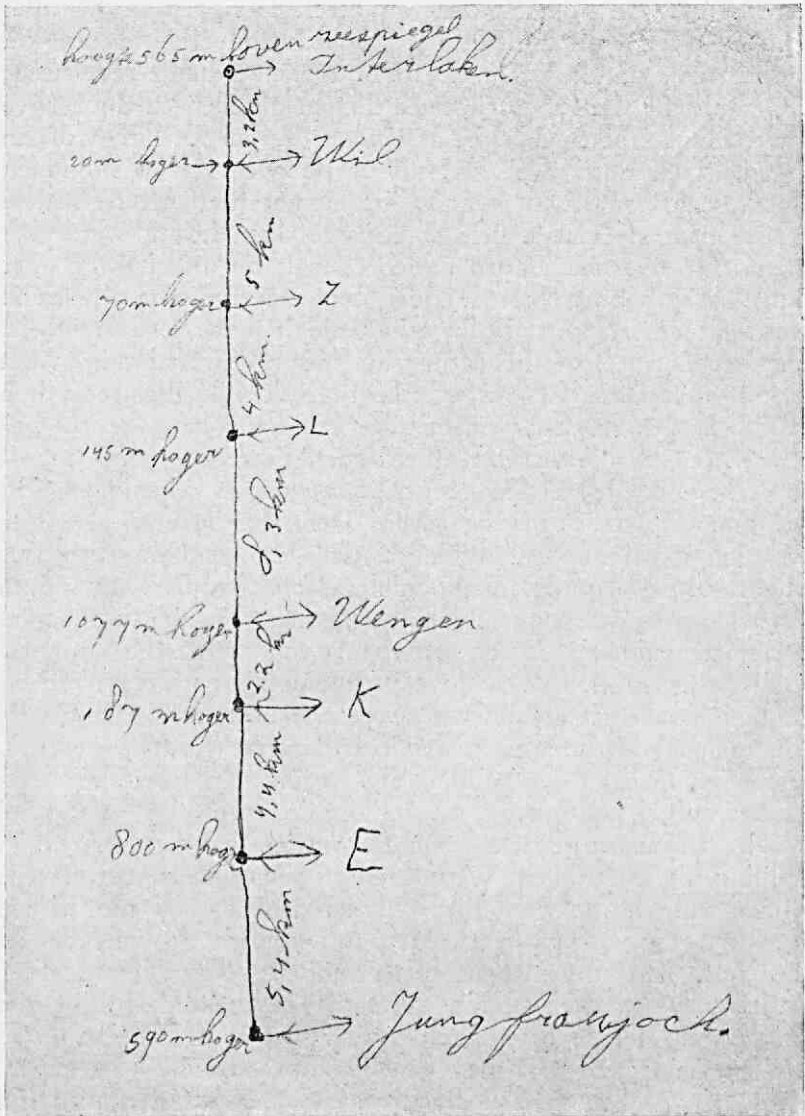 hoogte 565 m boven zeespiegel
Interlaken.
3,2 km
20m hoger
Wil.
5 km
70m hoger
Z
4 km
145 m hoger
L
8,3 km
1077m hoger
Wengen
2.2 km
187 m hoger
K
4,4 km
800 m hoger
E
5,4 km
590 m hoger
Jungfraujoch.